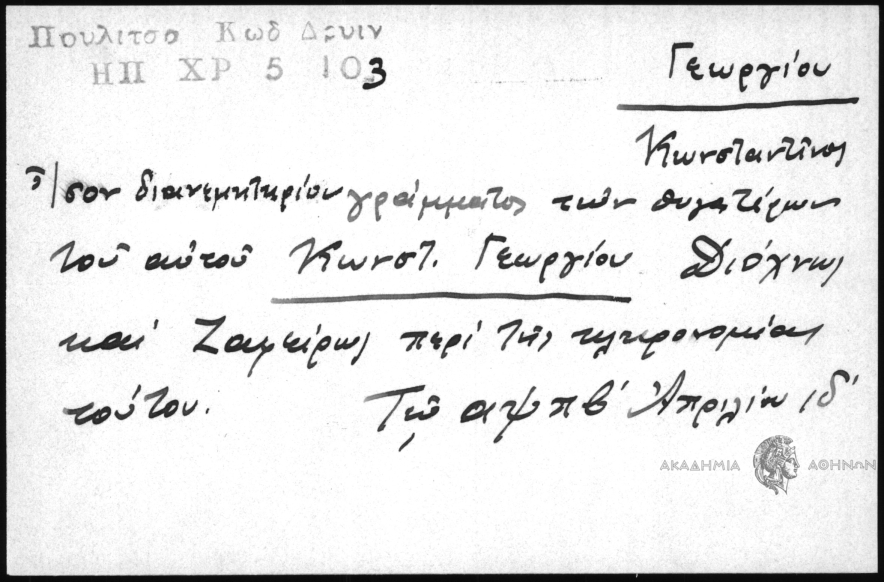 Πουλιτσο Κωδ Δρυιν
ΗΠ ΧΡ 5 103
Γεωργίου
Κωνσταντῖνος
ἴσον διανεμητηρίου γράμματος τῶν θυγατέρων
τοῦ αὐτοῦ Κωνστ. Γεωργίου
καὶ Ζαφείρως περὶ τῆς κληρονομίας
τούτου. Τῷ αψπβʹ Ἀπριλίου ιδʹ
ΑΚΑΔΗΜΙΑ ΑΘΗΝΩΝ